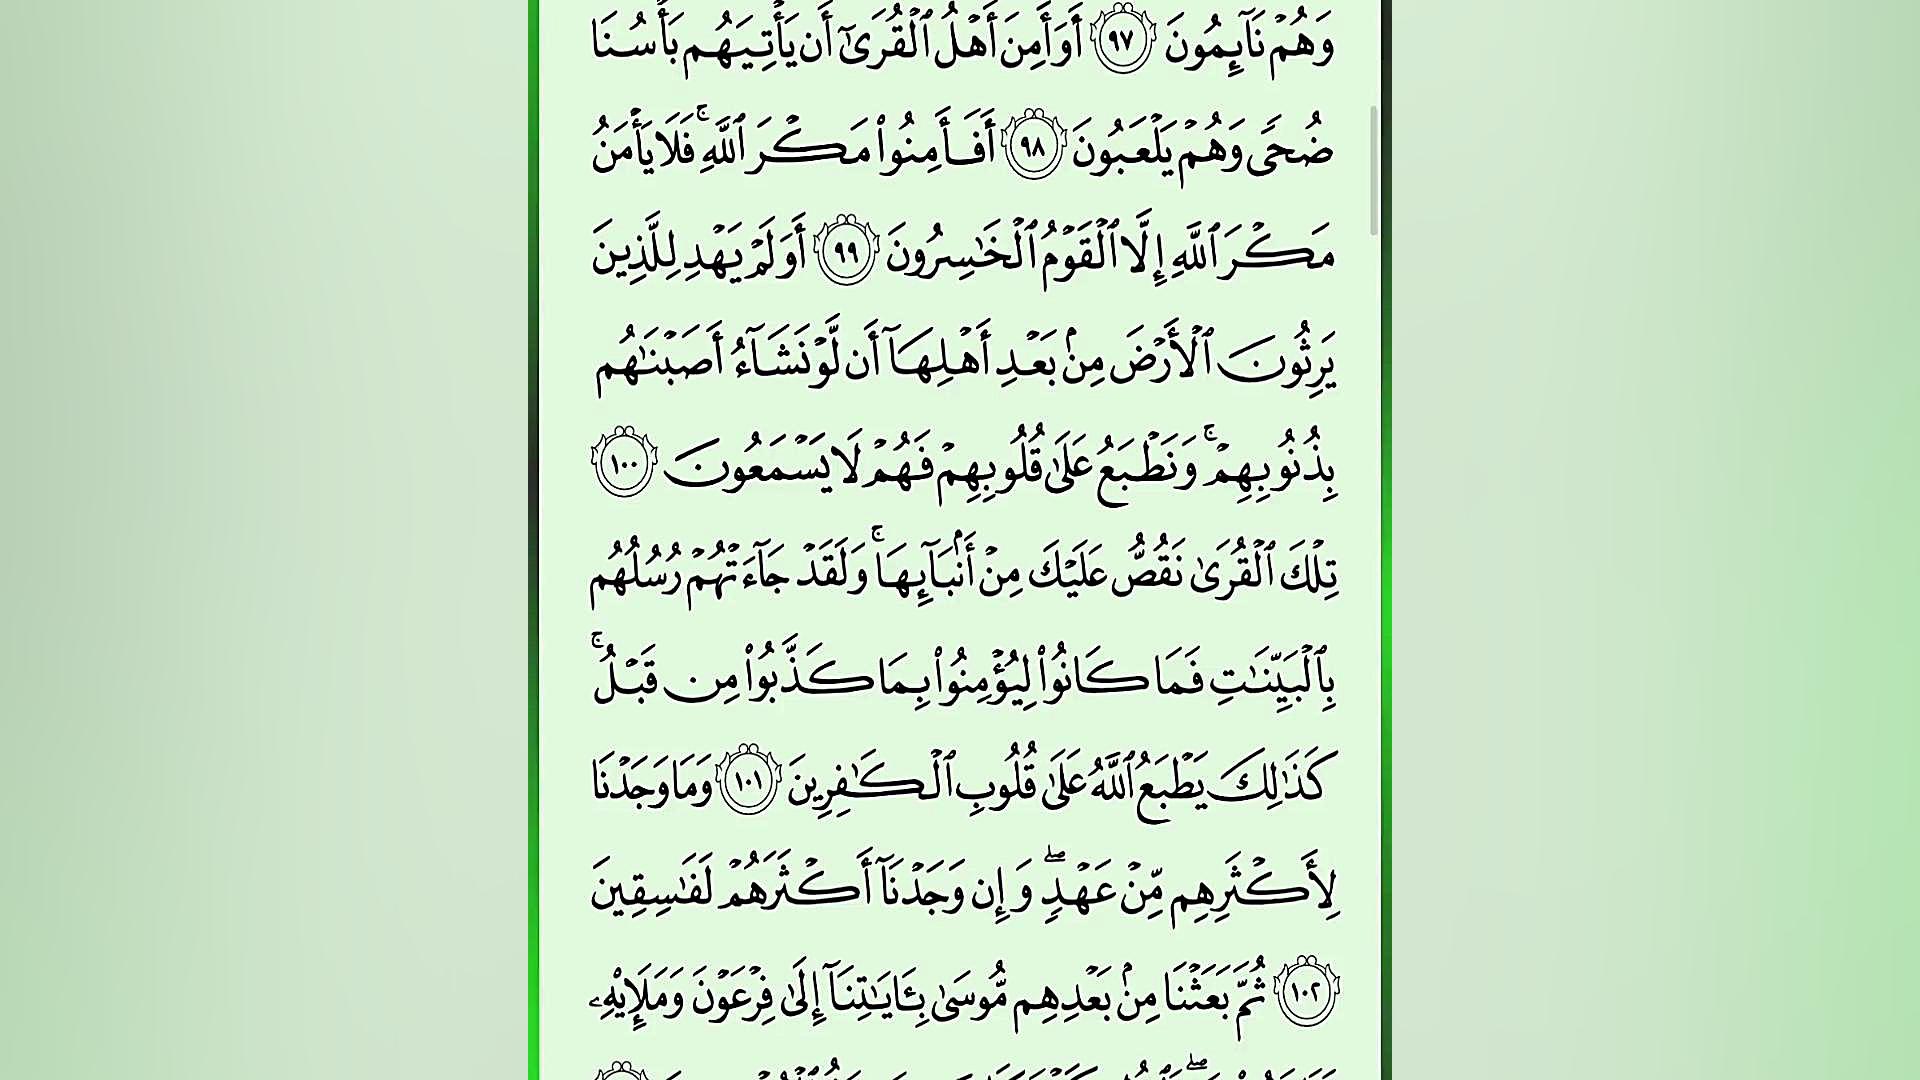 وَهُمْ نَآئِمُونَ ٩٧ أَوَأَمِنَ أَهْلُ ٱلْقُرَىٰٓ أَن يَأْتِيَهُم بَأْسُنَا
ضُحًى وَهُمْ يَلْعَبُونَ ٩٨ أَفَأَمِنُوا۟ مَكْرَ ٱللَّهِ ۚ فَلَا يَأْمَنُ
مَكْرَ ٱللَّهِ إِلَّا ٱلْقَوْمُ ٱلْخَٰسِرُونَ ٩٩ أَوَلَمْ يَهْدِ لِلَّذِينَ
يَرِثُونَ ٱلْأَرْضَ مِنۢ بَعْدِ أَهْلِهَآ أَن لَّوْ نَشَآءُ أَصَبْنَٰهُم
بِذُنُوبِهِمْ ۚ وَنَطْبَعُ عَلَىٰ قُلُوبِهِمْ فَهُمْ لَا يَسْمَعُونَ ١٠٠
تِلْكَ ٱلْقُرَىٰ نَقُصُّ عَلَيْكَ مِنْ أَنۢبَآئِهَا ۚ وَلَقَدْ جَآءَتْهُمْ رُسُلُهُم
بِٱلْبَيِّنَٰتِ فَمَا كَانُوا۟ لِيُؤْمِنُوا۟ بِمَا كَذَّبُوا۟ مِن قَبْلُ ۚ
كَذَٰلِكَ يَطْبَعُ ٱللَّهُ عَلَىٰ قُلُوبِ ٱلْكَٰفِرِينَ ١٠١ وَمَا وَجَدْنَا
لِأَكْثَرِهِم مِّنْ عَهْدٍ ۖ وَإِن وَجَدْنَآ أَكْثَرَهُمْ لَفَٰسِقِينَ
١٠٢ ثُمَّ بَعَثْنَا مِنۢ بَعْدِهِم مُّوسَىٰ بِـَٔايَٰتِنَآ إِلَىٰ فِرْعَوْنَ وَمَلَإِي۟هِۦ